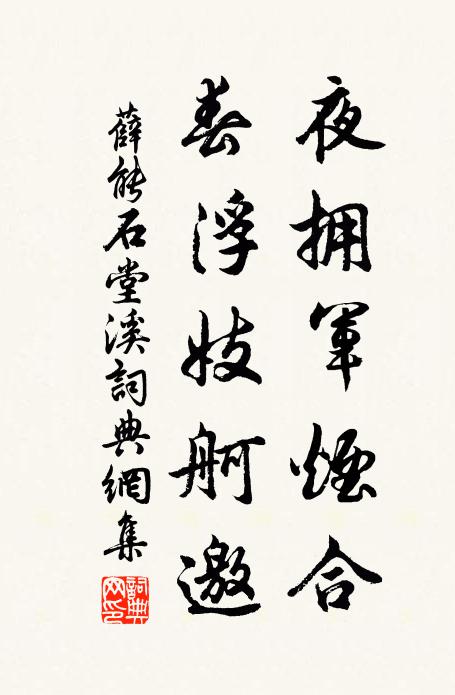 夜拥军煙合
春浮妓舸邀
薛能石堂溪詞典網集
詞典网印